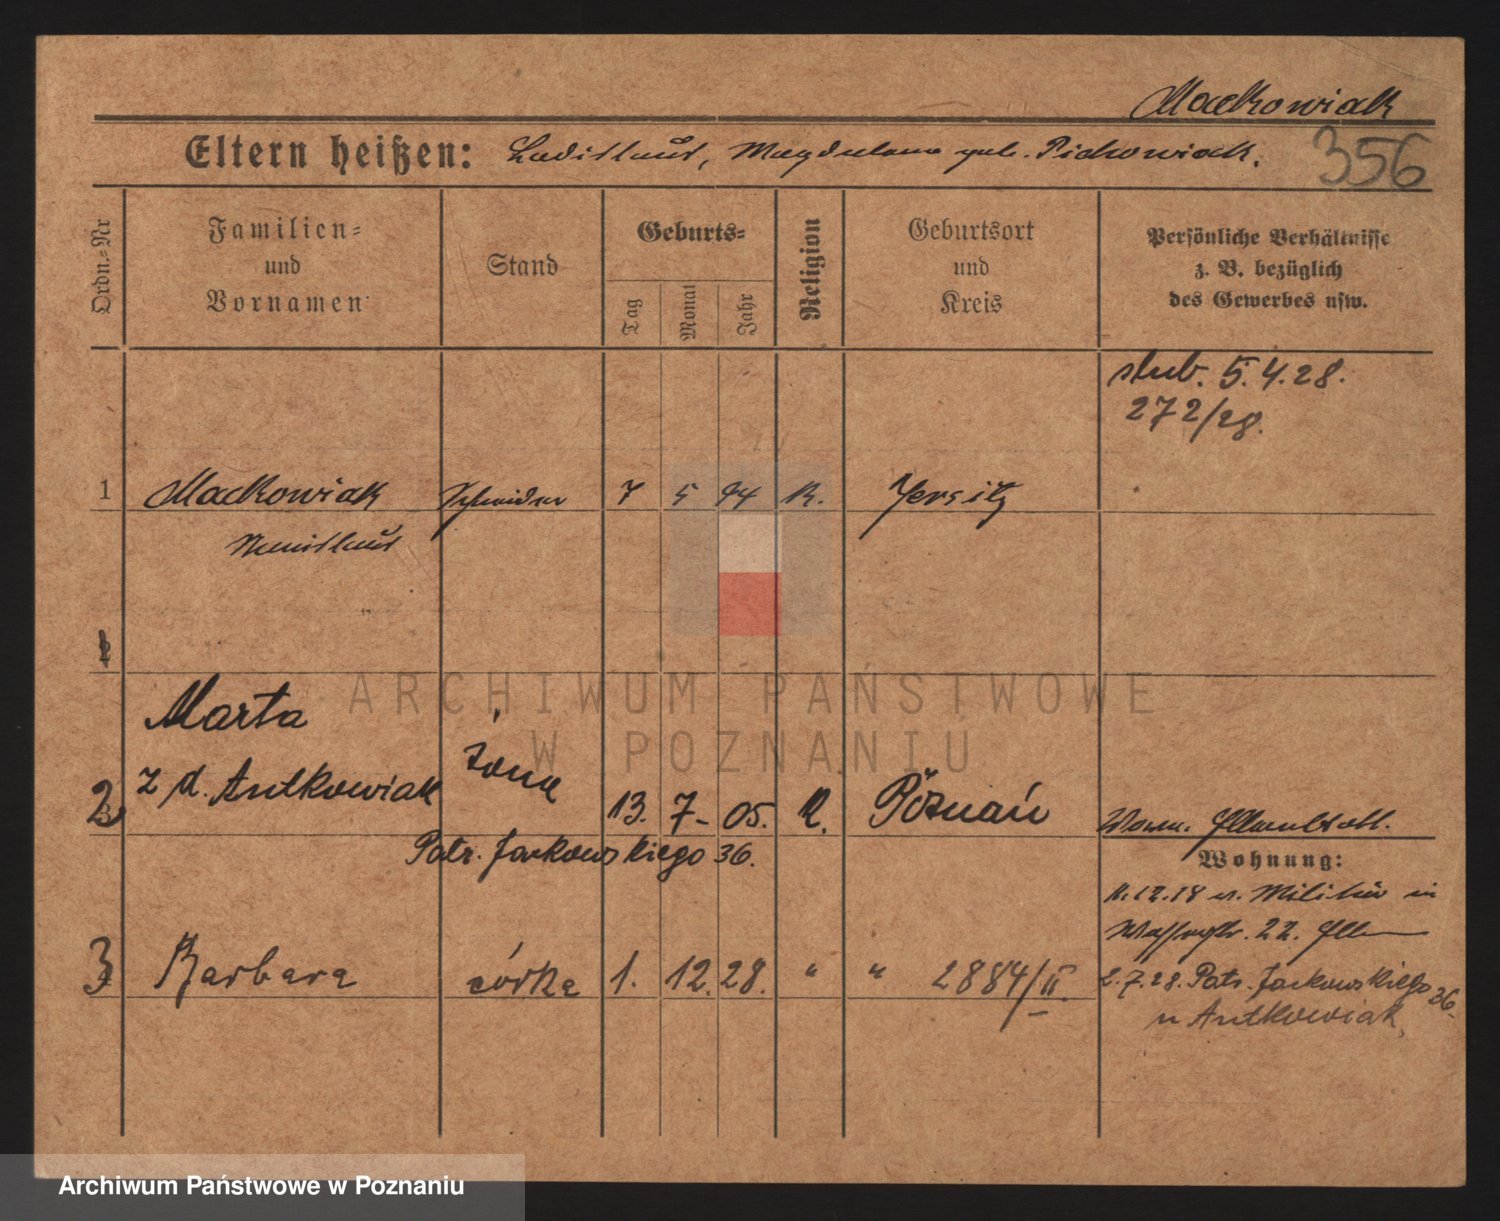 Mackowiak
Eltern heißen: Ladislaus, Magdalena geb. Pichowiak.
356
Ordn.-Nr
Familien-
und
Vornamen
Stand
Geburts-
Tag
Monat
Jahr
Religion
Geburtsort
und
Kreis
Persönliche Verhältnisse
z. B. bezüglich
des Gewerbes usw.
ślub. 5.4.28.
272/28.
1 Mackowiak Schneider 7 5 94 K. Jersitz
Stanislaus
Marta
z d. Antkowiak żona
2 13. 7- 05. R. Poznań
Patr. Jackowskiego 36.
Wohnung:
11.12.18 v. Militär in
22.
3 Barbara córka 1. 12. 28. " " 2884/II.
2.7.28. Patr. Jackowskiego 36-
u Antkowiak,
ARCHIWUM PAŃSTWOWE
W POZNANIU
Archiwum Państwowe w Poznaniu